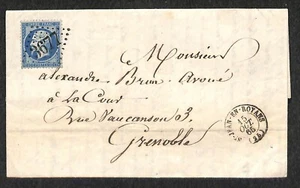 Monsieur
alexandre Brun. Avoué
à La Cour
Rue Vaucanson 3.
Grenoble
ST-JEAN-EN-ROYANS
OCT.
66
(25)